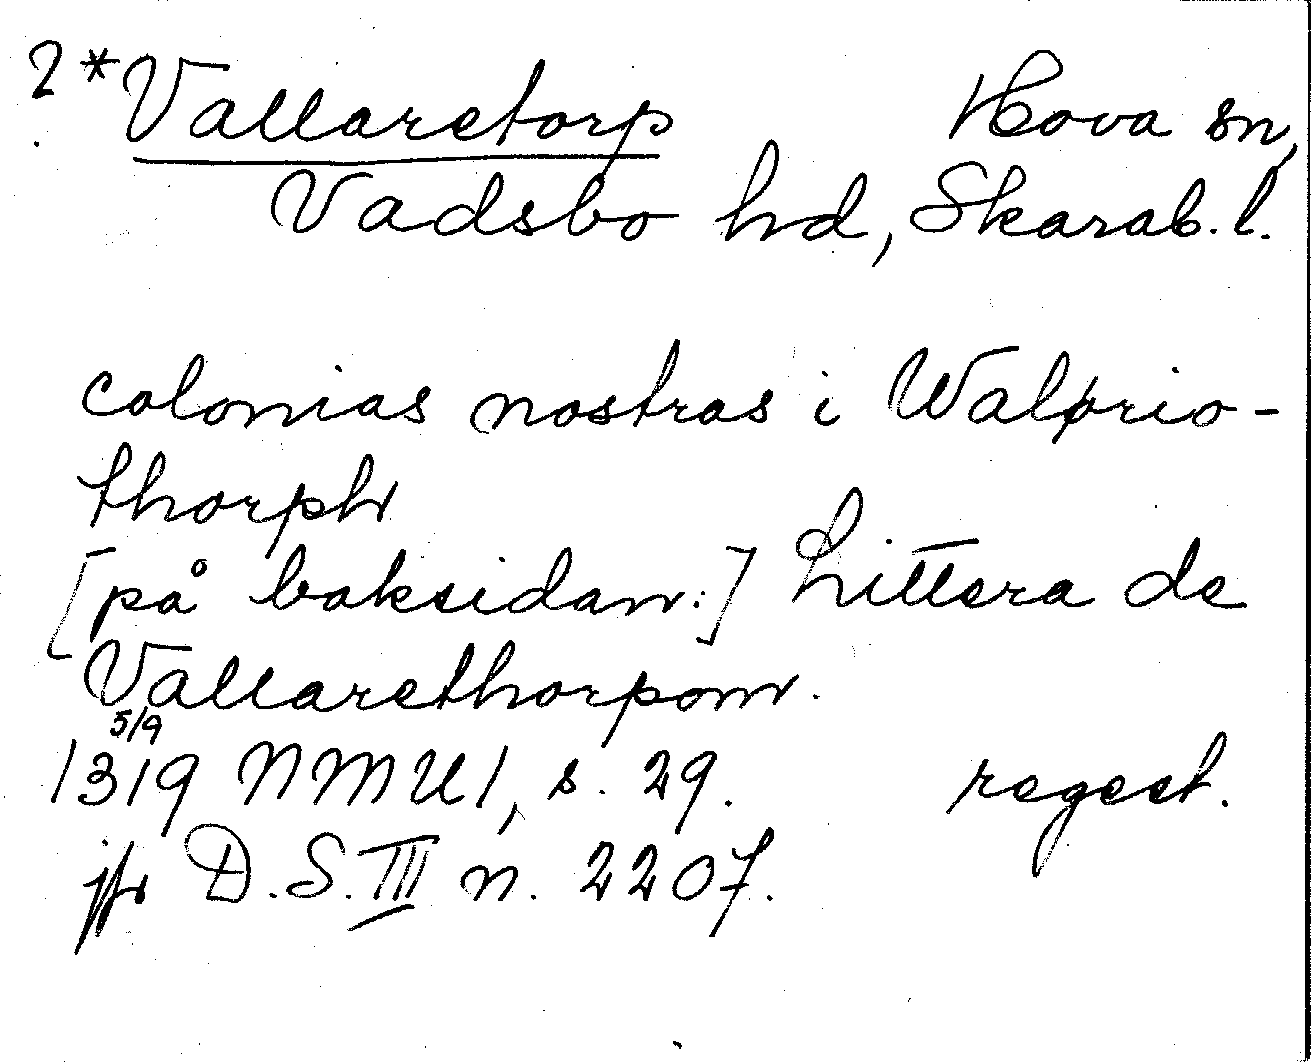 2 *Vallaretorp Hova sn,
Vadsbo hd, Skarab. l.
colonias nostras i Walþrio-
thorph
[på baksidan:] Littera de
Vallarethorpom.
5/9
1319 NMU 1, s. 29. regest.
jfr D.S. III n. 2207.